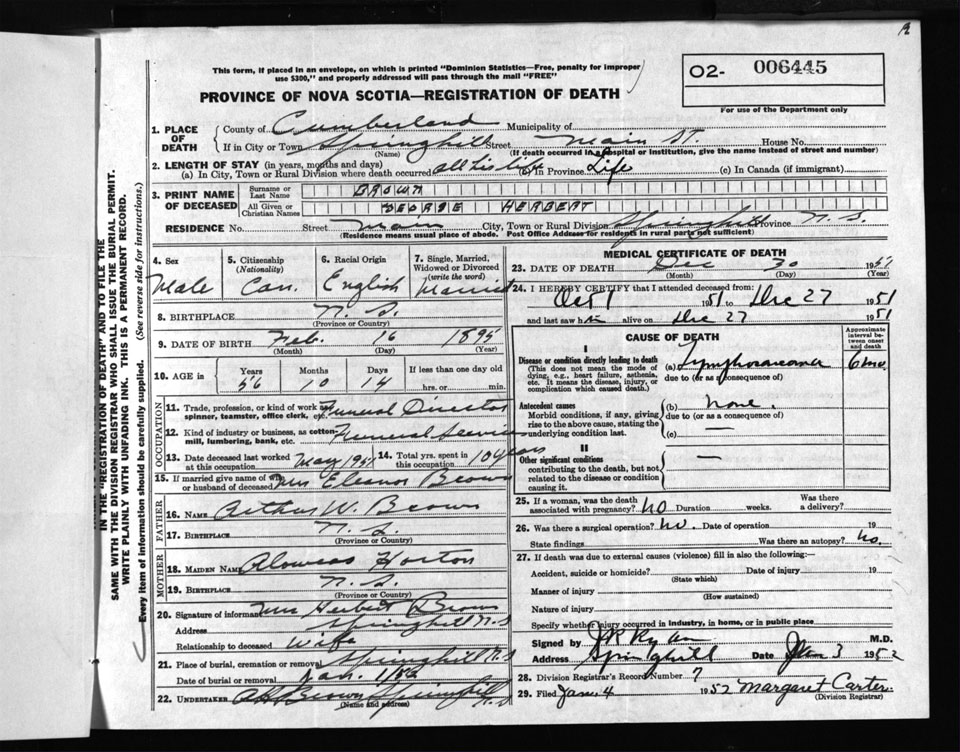 This form, if placed in an envelope, on which is printed "Dominion Statistics—Free, penalty for improper
use $300," and properly addressed will pass through the mail "FREE"
PROVINCE OF NOVA SCOTIA—REGISTRATION OF DEATH
O2- 006445
For use of the Department only
IN THE "REGISTRATION OF DEATH" AND TO FILE THE
SAME WITH THE DIVISION REGISTRAR WHO SHALL ISSUE THE BURIAL PERMIT.
WRITE PLAINLY WITH UNFADING INK. THIS IS A PERMANENT RECORD.
Every item of information should be carefully supplied. (See reverse side for instructions.)
1. PLACE OF DEATH
County of Cumberland Municipality of
If in City or Town Springhill Street Main St House No.
(Name) (If death occurred in a hospital or institution, give the name instead of street and number)
2. LENGTH OF STAY (in years, months and days)
(a) In City, Town or Rural Division where death occurred all his life (b) In Province Life (c) In Canada (if immigrant)
3. PRINT NAME OF DECEASED
Surname or Last Name BROWN
All Given or Christian Names GEORGE HERBERT
RESIDENCE No. Street Main City, Town or Rural Division Springhill Province N.S.
(Residence means usual place of abode. Post Office Address for residents in rural parts not sufficient)
4. Sex Male
5. Citizenship (Nationality) Can.
6. Racial Origin English
7. Single, Married, Widowed or Divorced (write the word) Married
8. BIRTHPLACE N.S.
(Province or Country)
9. DATE OF BIRTH Feb. 16 1895
(Month) (Day) (Year)
10. AGE in Years 56 Months 10 Days 14 If less than one day old
hrs. or min.
OCCUPATION
11. Trade, profession, or kind of work as spinner, teamster, office clerk, etc. Funeral Director
12. Kind of industry or business, as cotton mill, lumbering, bank, etc. Funeral Service
13. Date deceased last worked at this occupation May 1951
14. Total yrs. spent in this occupation 10 years
15. If married give name of wife or husband of deceased Mrs Eleanor Brown
FATHER
16. NAME Arthur W. Brown
17. BIRTHPLACE N.S.
(Province or Country)
MOTHER
18. MAIDEN NAME Horton
19. BIRTHPLACE N.S.
(Province or Country)
20. Signature of informant Mrs Herbert Brown
Address Springhill N.S
Relationship to deceased Wife
21. Place of burial, cremation or removal Springhill N.S
Date of burial or removal Jan. 1/52
22. UNDERTAKER Brown Springhill N.S
(Name and address)
MEDICAL CERTIFICATE OF DEATH
23. DATE OF DEATH Dec 30 1951
(Month) (Day) (Year)
24. I HEREBY CERTIFY that I attended deceased from:
Oct 1 1951 to Dec 27 1951
and last saw him alive on Dec 27 1951
CAUSE OF DEATH
Approximate interval between onset and death
I
Disease or condition directly leading to death (a) Lymphosarcoma 6 mo.
(This does not mean the mode of dying, e.g., heart failure, asthenia, etc. It means the disease, injury, or complication which caused death.)
due to (or as a consequence of)
Antecedent causes (b) none.
Morbid conditions, if any, giving rise to the above cause, stating the underlying condition last.
due to (or as a consequence of)
(c) —
II
Other significant conditions —
contributing to the death, but not related to the disease or condition causing it.
25. If a woman, was the death associated with pregnancy? no Duration weeks. Was there a delivery?
26. Was there a surgical operation? no. Date of operation 19
State findings Was there an autopsy? no.
27. If death was due to external causes (violence) fill in also the following:—
Accident, suicide or homicide? Date of injury 19
(State which)
Manner of injury
(How sustained)
Nature of injury
Specify whether injury occurred in industry, in home, or in public place
Signed by J R Ryan M.D.
Address Springhill Date Jan 3 1952
28. Division Registrar's Record Number 7
29. Filed Jan. 4 1952 Margaret Carter
(Division Registrar)